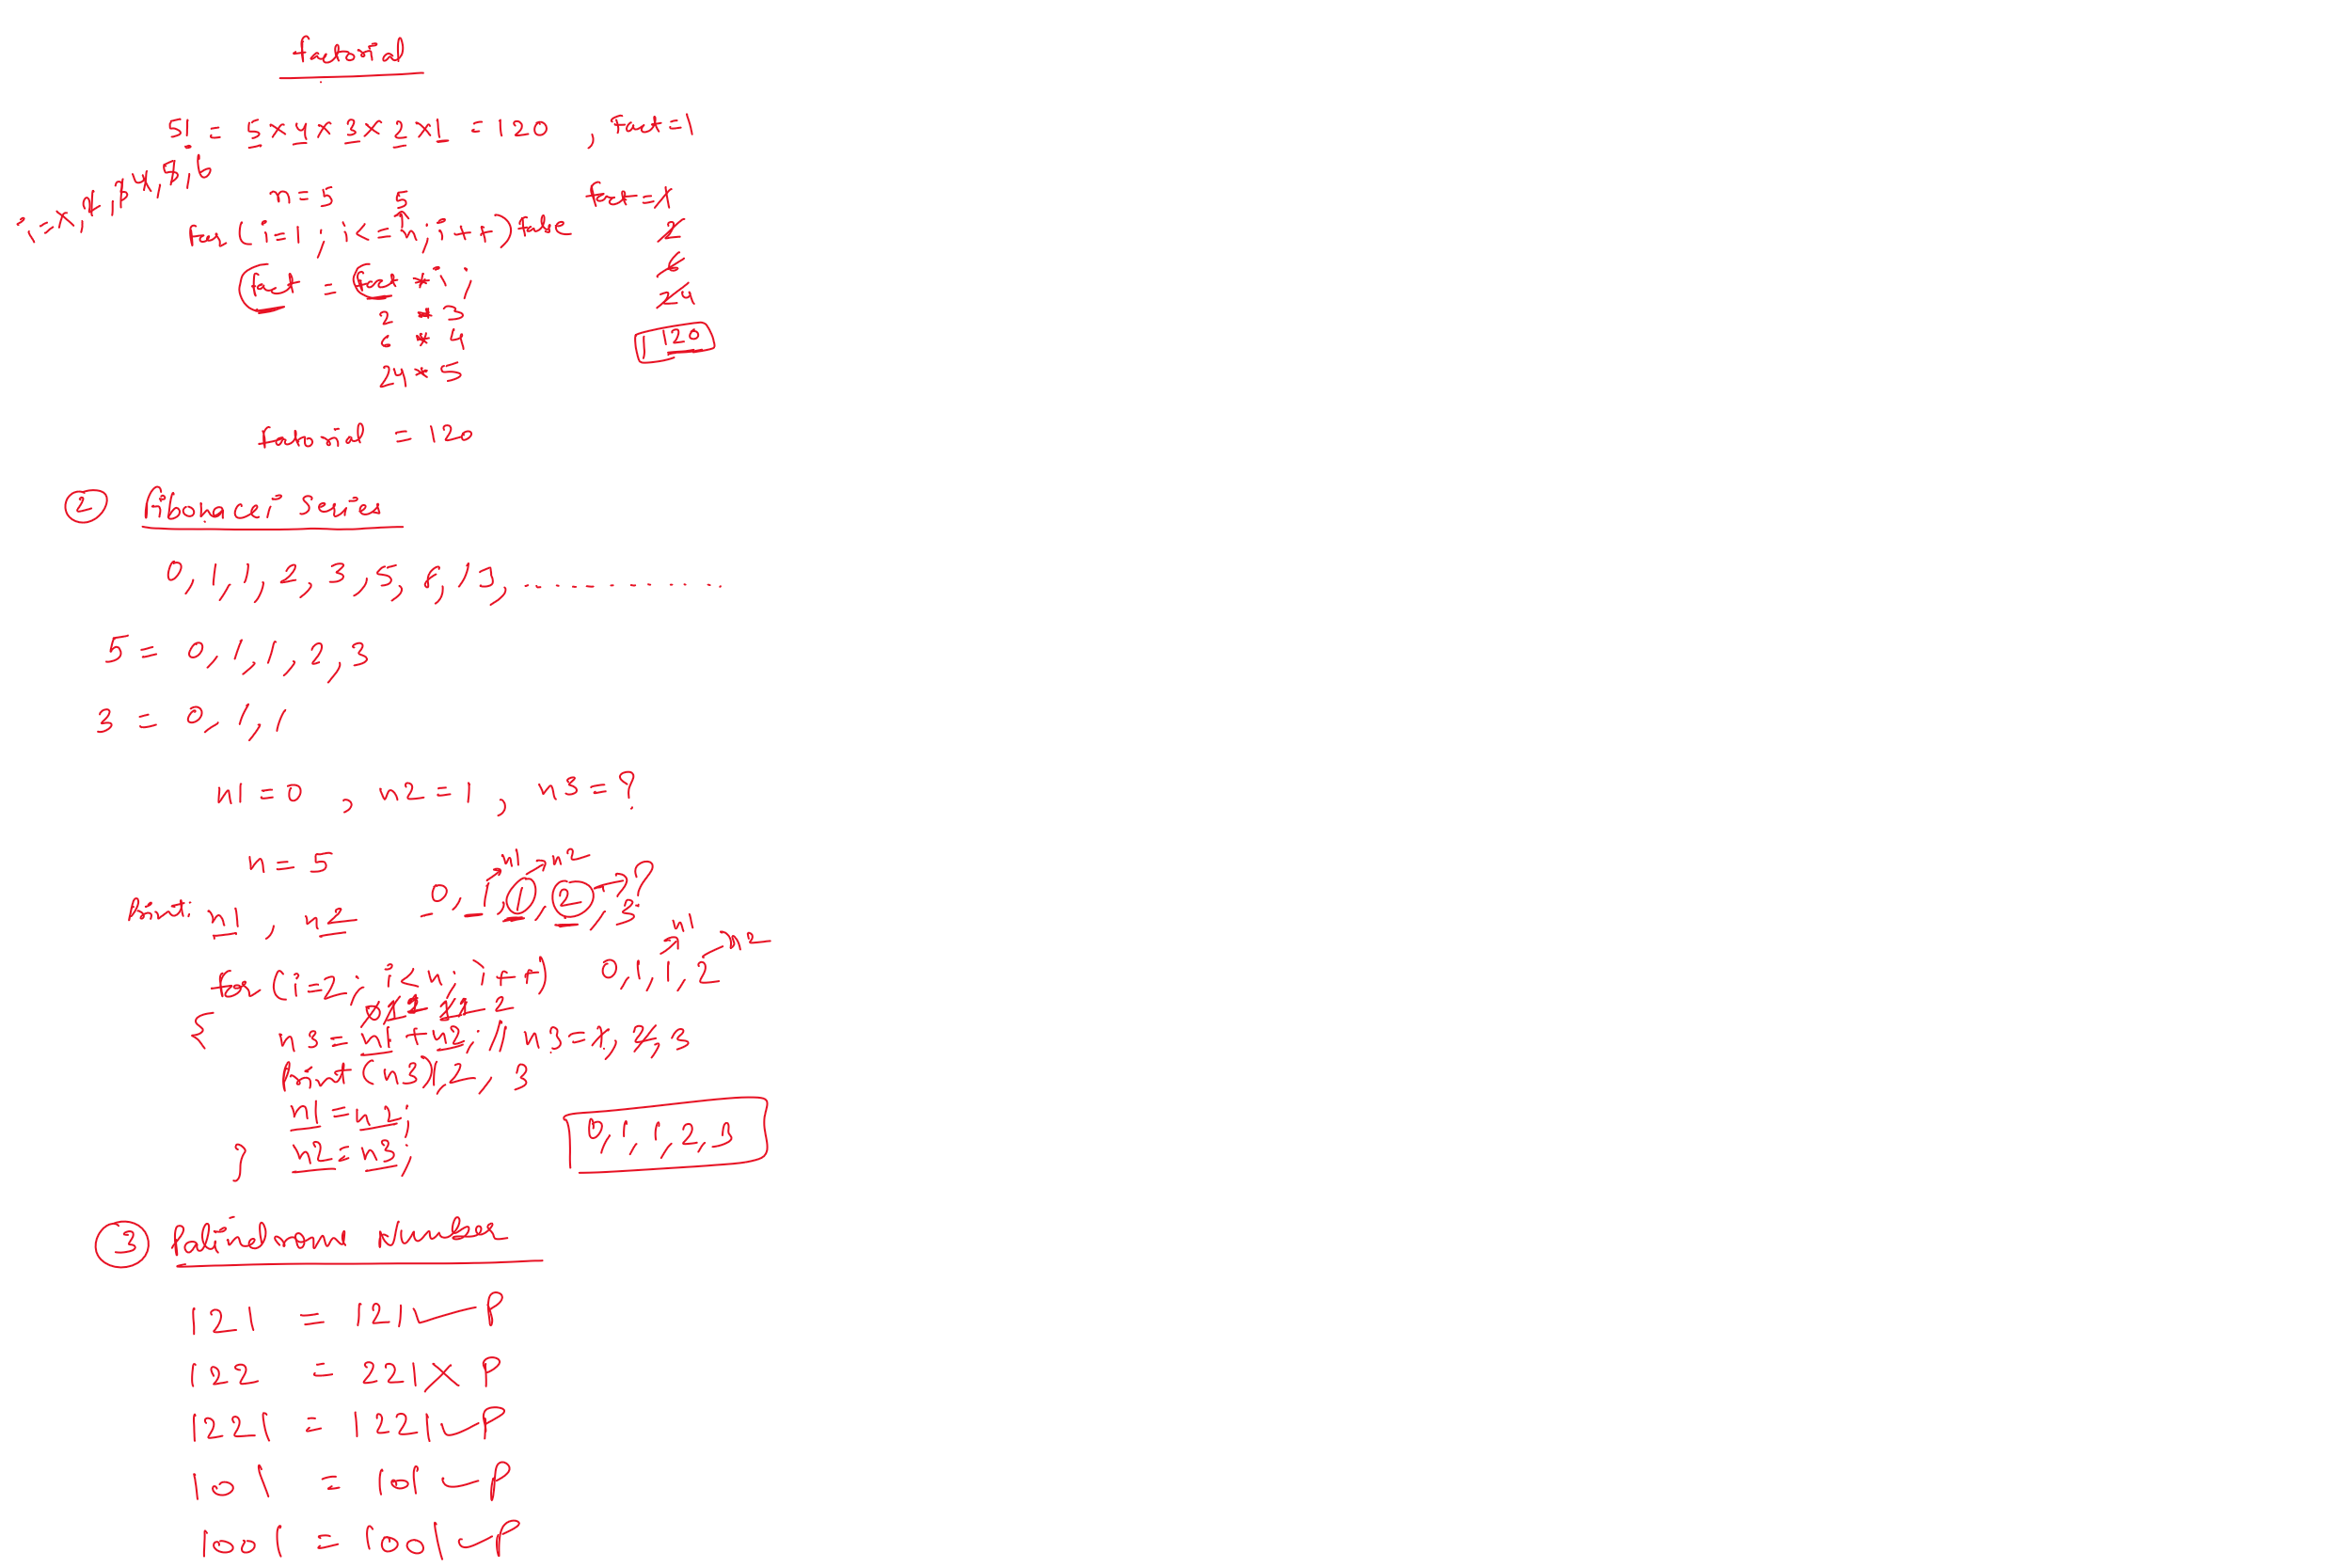 factorial
5! = 5 × 4 × 3 × 2 × 1 = 120 , fact=1
i=1,2,3,4,5,6
n=5 5 fact=1
for(i=1; i<=n; i++) false 2
fact = fact * i; 6
2 * 3 24
6 * 4 120
24 * 5
fatorial = 120
② fibonacci series
0, 1, 1, 2, 3, 5, 8, 13, ..............
5 = 0, 1, 1, 2, 3
3 = 0, 1, 1
n1=0 , n2=1 , n3=?
n = 5 n1 n2
Print: n1 , n2 0, 1, 1, 2, ??
3
n1 n2
for(i=2; i<n; i++) 0, 1, 1, 2
{ 0 1 1 1 1 2
n3 = n1+n2; // n3=1, 2, 3
Print(n3) 1, 2, 3
n1 = n2;
} n2 = n3; 0, 1, 1, 2, 3
③ Palindrome Number
121 = 121 ✓ P
122 = 221 X P
1221 = 1221 ✓ P
101 = 101 ✓ P
1001 = 1001 ✓ P